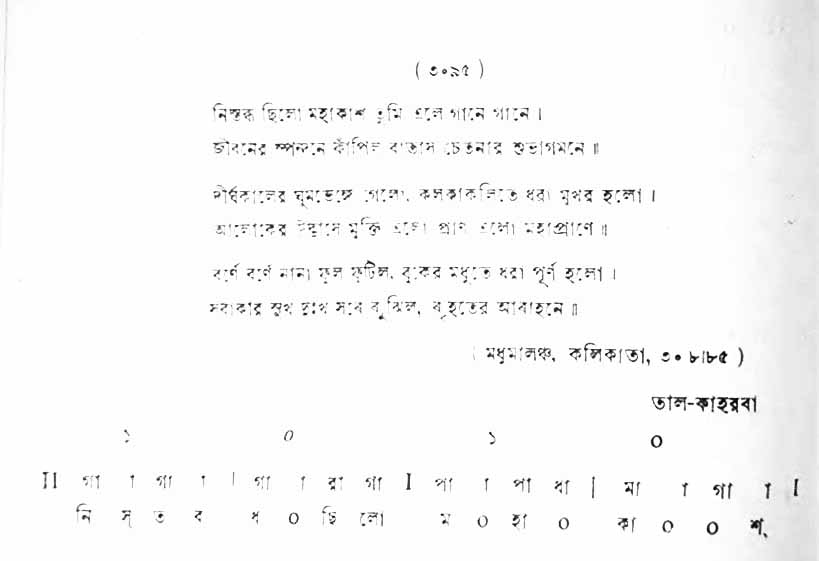 ( ৩০৯৫ )
নিস্তব্ধ ছিলো মহাকাশ তুমি এলে গানে গানে ।
জীবনের স্পন্দনে কাঁপিল বাতাস চেতনার শুভাগমনে ॥
দীর্ঘকালের ঘুমভেঙ্গে গেলো, কলকাকলিতে ধরা মুখর হলো ।
আলোকের উল্লাসে মুক্তি এলো প্রাণ এলো মহাপ্রাণে ॥
বর্ণে বর্ণে নানা ফুল ফুটিল, বুকের মধুতে ধরা পূর্ণ হলো ।
সবাকার সুখ দুঃখ সবে বুঝিল, বৃহতের আবাহনে ॥
( মধুমালঞ্চ, কলিকাতা, ৩০।৮।৮৫ )
তাল-কাহরবা
১ ০ ১ ০
II গা া গা া । গা া রা গা I পা া পা ধা | মা া গা া I
নি স্ ত ব ধ ০ ছি লো ম ০ হা ০ কা ০ ০ শ্